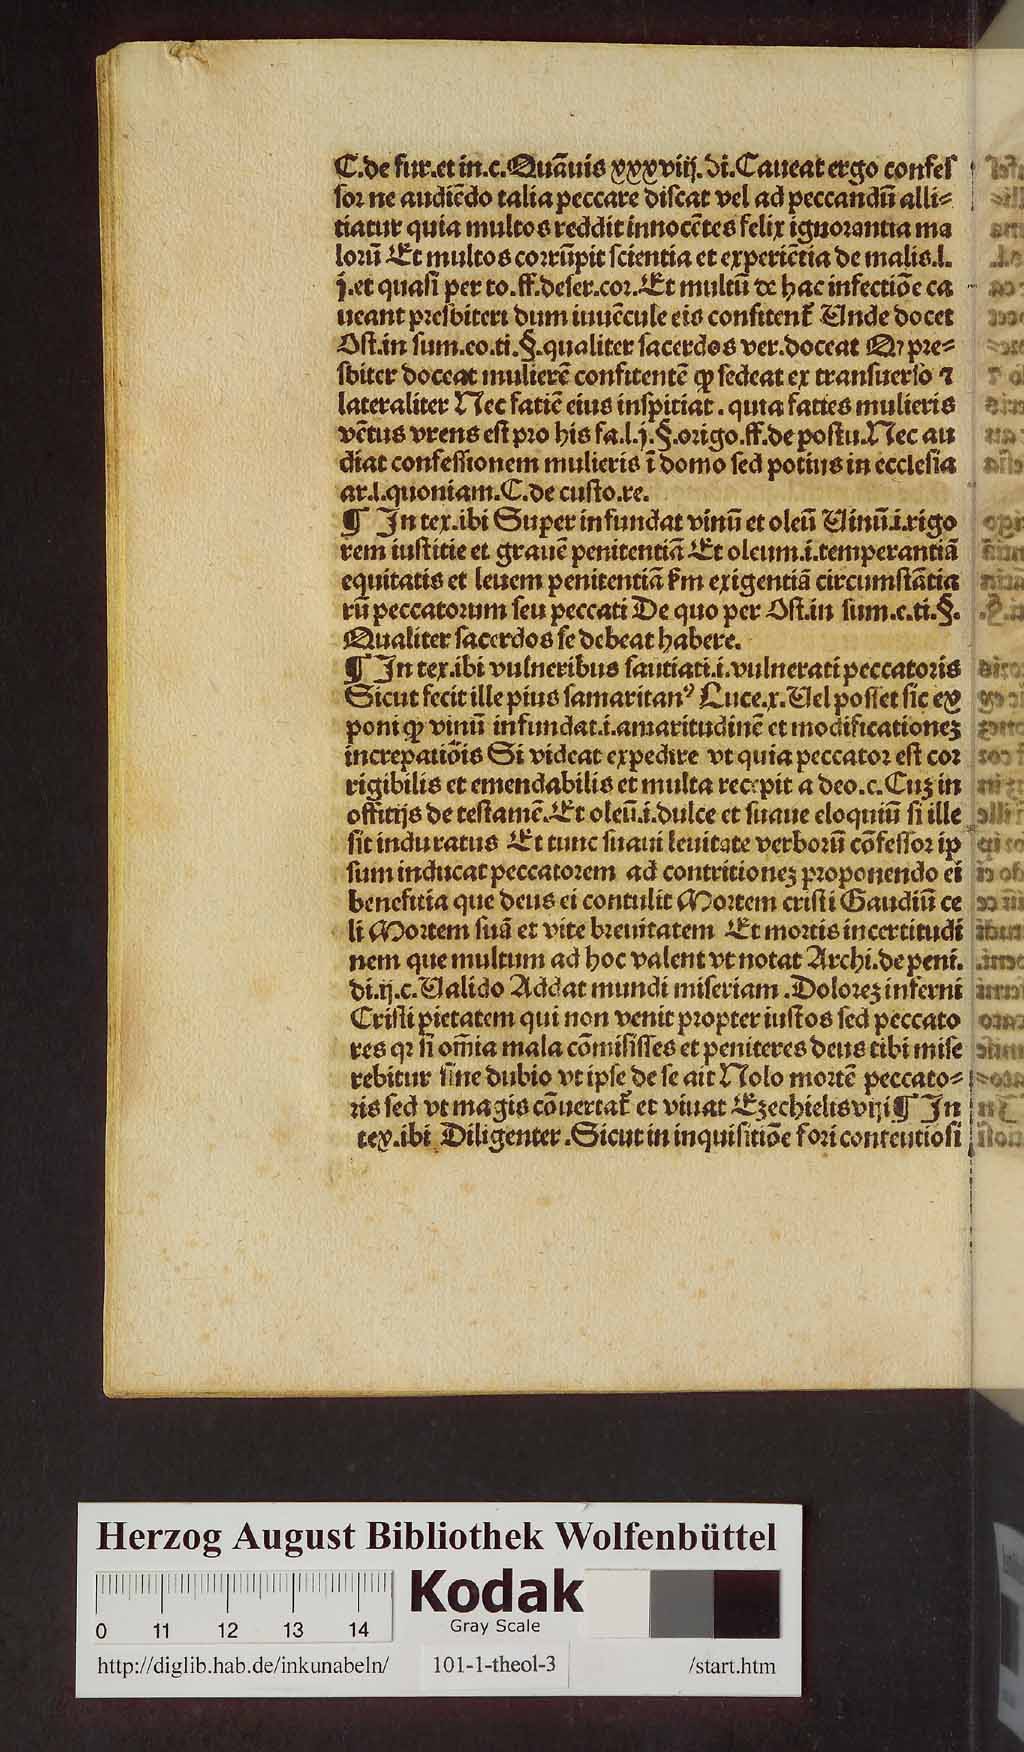 C.de fur.et in.c.Quāuis xxxviij.di.Caueat ergo confeſ
ſor ne audiēdo talia peccare diſcat vel ad peccandū alli⸗
tiatur quia multos reddit innocētes felix ignorantia ma
lorū Et multos corrūpit ſcientia et experiētia de malis.l.
j.et quaſi per to.ff.deſer.cor.Et multū de hac infectiōe ca
ueant preſbiteri dum iuuēcule eis confitentᷣ Unde docet
Oſt.in ſum.eo.ti.§.qualiter ſacerdos ver.doceat Qꝛ pre⸗
ſbiter doceat mulierē confitentē ꝙ ſedeat ex tranſuerſo ⁊
lateraliter Nec fatiē eius inſpitiat.quia faties mulieris
vētus vrens eſt pro his fa.l.j.§.origo.ff.de poſtu.Nec au
diat confeſſionem mulieris ī domo ſed potius in eccleſia
ar.l.quoniam.C.de cuſto.re.
¶ In tex.ibi Super infundat vinū et oleū Uinū.i.rigo
rem iuſtitie et grauē penitentiā Et oleum.i.temperantiā
equitatis et leuem penitentiā ẜm exigentiā circumſtātia
rū peccatorum ſeu peccati De quo per Oſt.in ſum.e.ti.§.
Qualiter ſacerdos ſe debeat habere.
¶ In tex.ibi vulneribus ſautiati.i.vulnerati peccatoris
Sicut fecit ille pius ſamaritanꝰ Luce.x.Uel poſſet ſic ex
poni ꝙ vinū infundat.i.amaritudinē et modificationeꝫ
increpatiōis Si videat expedire vt quia peccator eſt cor
rigibilis et emendabilis et multa recepit a deo.c.Cuꝫ in
offitijs de teſtamē.Et oleū.i.dulce et ſuaue eloquiū ſi ille
ſit induratus Et tunc ſuaui leuitate verborū cōfeſſor ip
ſum inducat peccatorem ad contritioneꝫ proponendo ei
benefitia que deus ei contulit Mortem criſti Gaudiū ce
li Mortem ſuā et vite breuitatem Et mortis incertitudi
nem que multum ad hoc valent vt notat Archi.de peni.
di.ij.c.Ualido Addat mundi miſeriam.Doloreꝫ inferni
Criſti pietatem qui non venit propter iuſtos ſed peccato
res qꝛ ſi om̄ia mala cōmiſiſſes et peniteres deus tibi miſe
rebitur ſine dubio vt ipſe de ſe ait Nolo mortē peccato⸗
ris ſed vt magis cōuertatᷣ et viuat Ezechielis viij ¶ In
tex.ibi Diligenter.Sicut in inquiſitiōe fori contentioſi
Herzog August Bibliothek Wolfenbüttel
Kodak
Gray Scale
0 11 12 13 14
http://diglib.hab.de/inkunabeln/ 101-1-theol-3 /start.htm